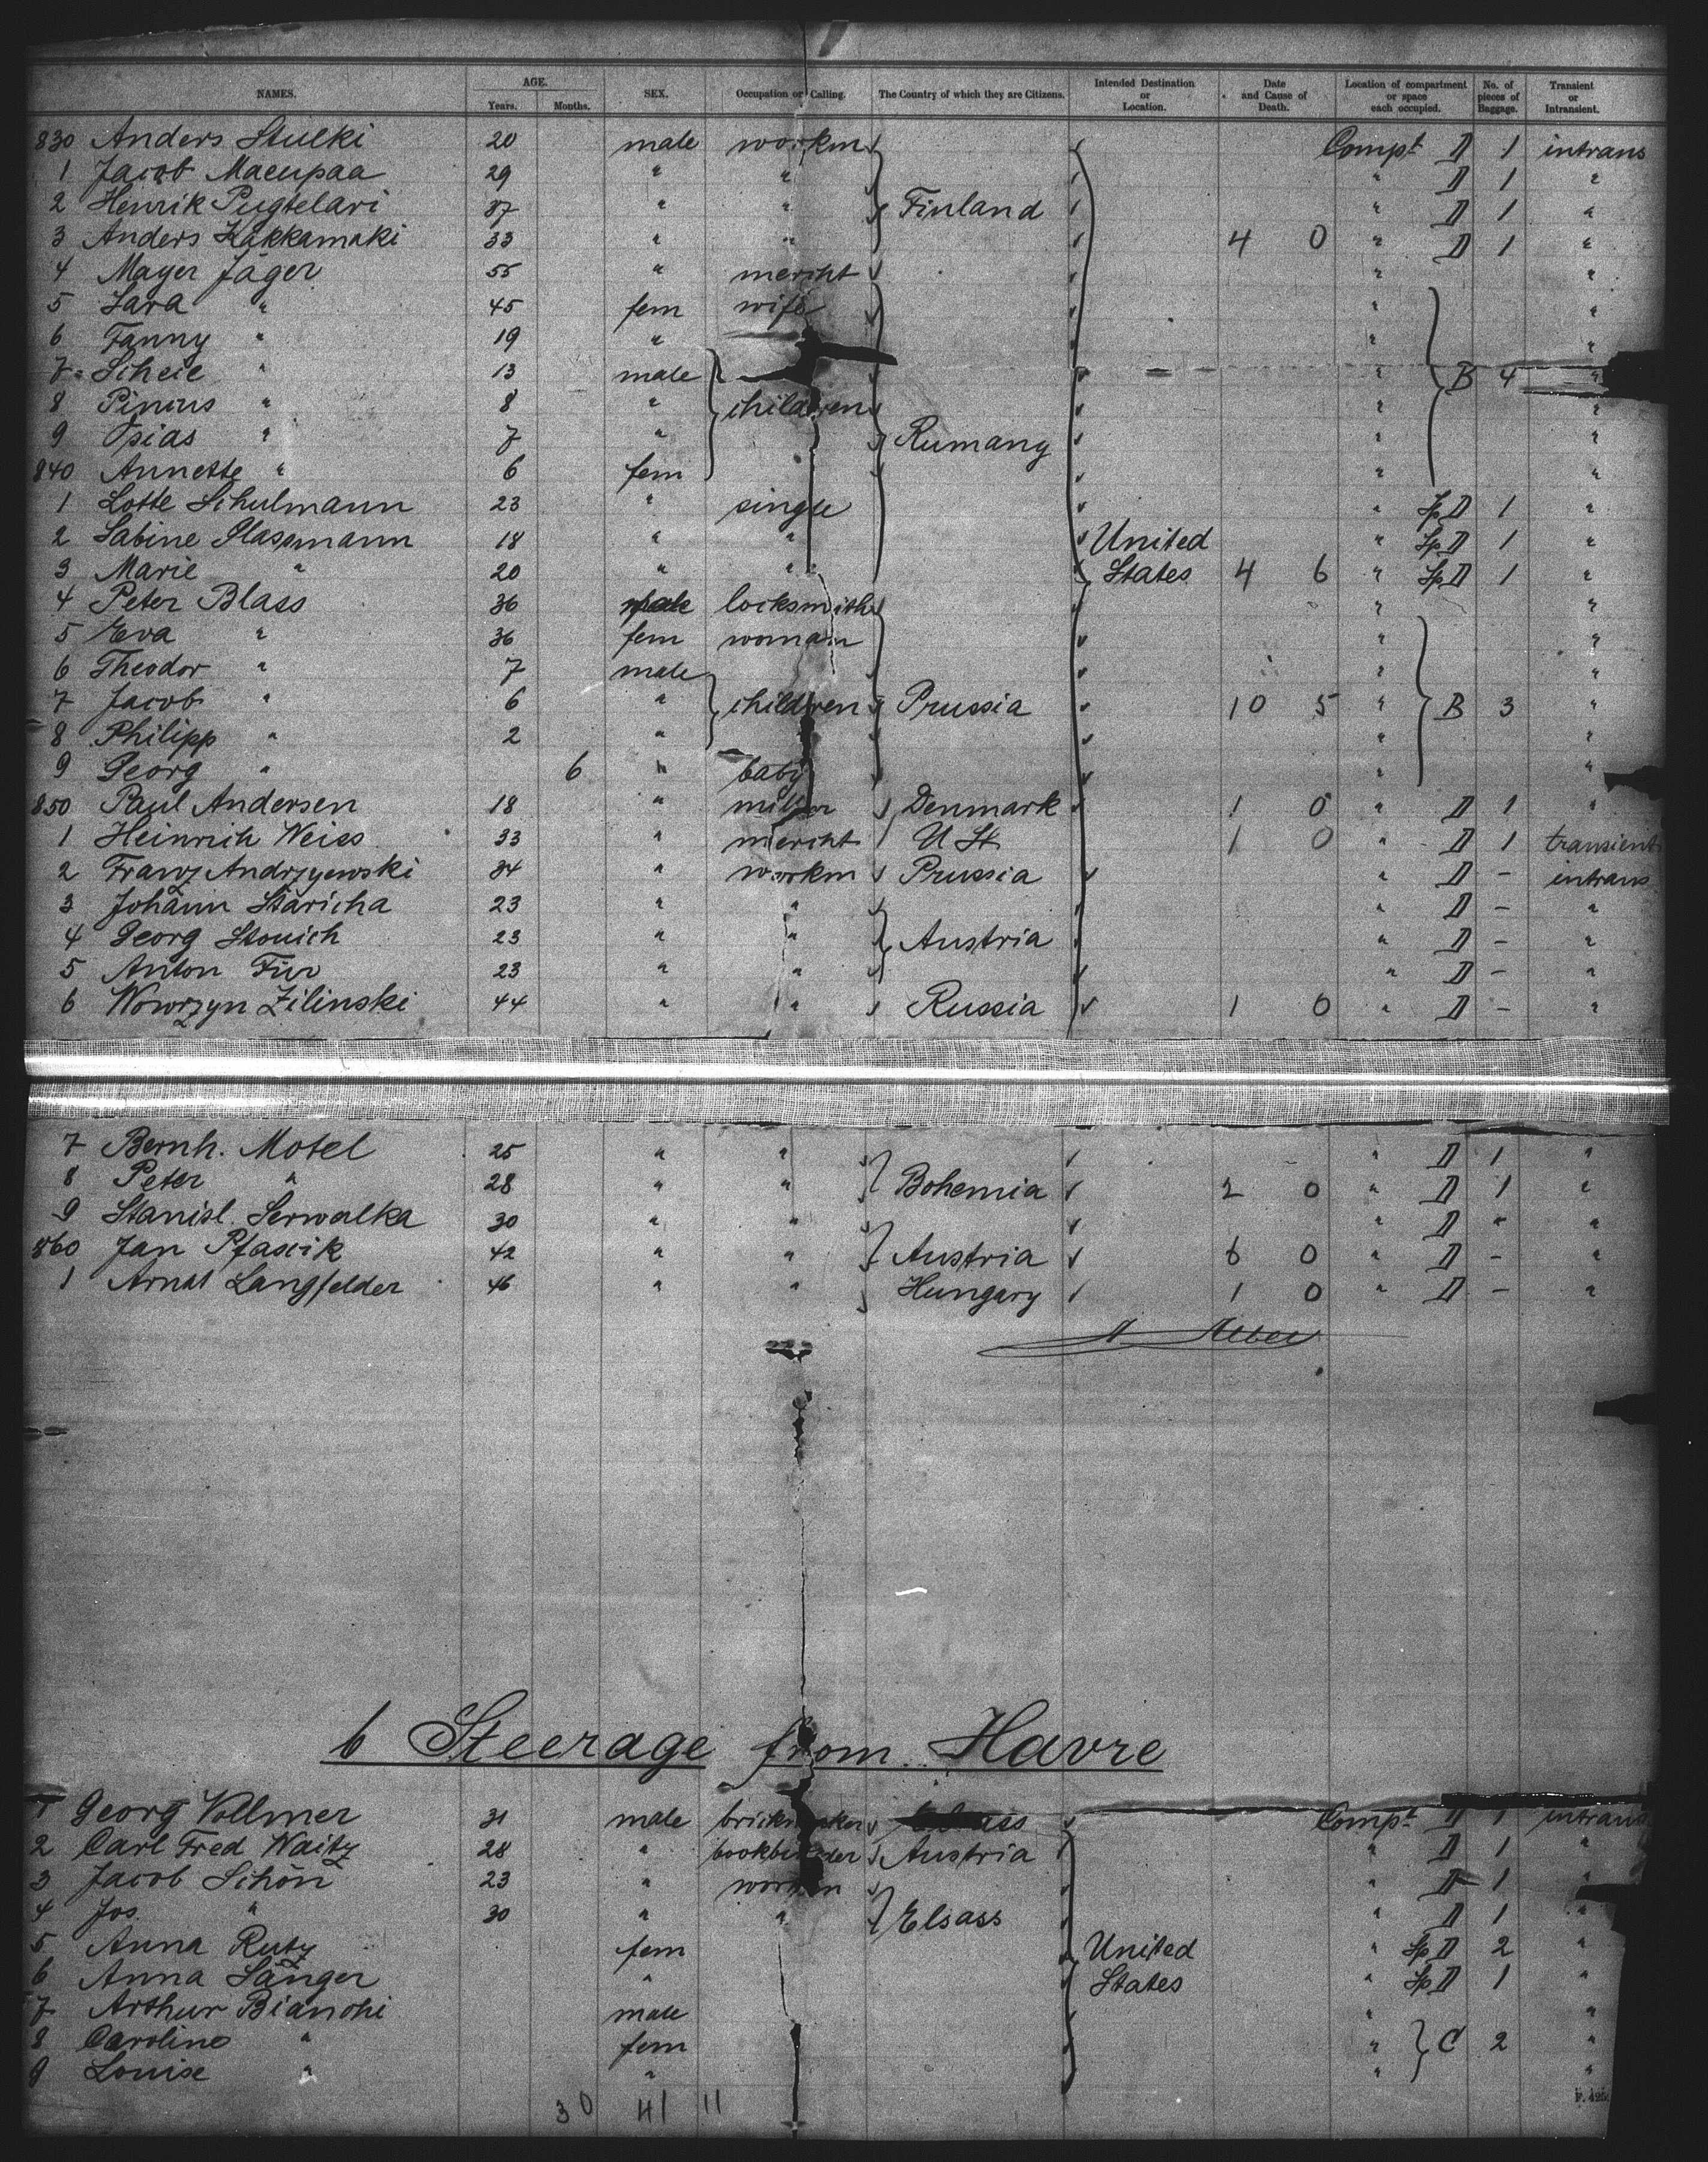 NAMES. AGE. Years. Months. SEX. Occupation or Calling. The Country of which they are Citizens. Intended Destination or Location. Date and Cause of Death. Location of compartment or space each occupied. No. of pieces of Baggage. Transient or Intransient.
830 Anders Stulki 20 male workm Compt D 1 intrans
1 Jacob Maeupaa 29 " " " D 1 "
2 Henrik Pugtelari 37 " " Finland " D 1 "
3 Anders Kakkamaki 33 " " 4 0 " D 1 "
4 Mayer Jäger 55 " mercht " "
5 Sara " 45 fem wife " "
6 Fanny " 19 " " "
7 Scheie " 13 male " B 4 "
8 Pincus " 8 " children " "
9 Ipias " 7 " Rumany " "
840 Annette " 6 fem " " "
1 Lotte Schulmann 23 " single " Sp D 1 "
2 Sabine Glassmann 18 " " United " Sp D 1 "
3 Marie " 20 " " States 4 6 " Sp D 1 "
4 Peter Blass 36 male locksmith " "
5 Eva " 36 fem woman " "
6 Theodor " 7 male " "
7 Jacob " 6 " children Prussia 10 5 " B 3 "
8 Philipp " 2 " " "
9 Georg " 6 " baby " "
850 Paul Andersen 18 " miller Denmark 1 0 " D 1 "
1 Heinrich Weiss 33 " mercht U St 1 0 " D 1 transient
2 Franz Andrzyewski 34 " workm Prussia " D – intrans
3 Johann Staricha 23 " " " D – "
4 Georg Stouich 23 " " Austria " D – "
5 Anton Fur 23 " " " D – "
6 Wowrzyn Zilinski 44 " " Russia 1 0 " D – "
7 Bernh. Motel 25 " " " D 1 "
8 Peter " 28 " " Bohemia 2 0 " D 1 "
9 Stanisl. Serwalka 30 " " " D " "
860 Jan Ptascik 42 " " Austria 6 0 " D – "
1 Arnst Langfelder 46 " " Hungary 1 0 " D – "
6 Steerage from Havre
1 Georg Vollmer 31 male brickmaker Compt D 1 intrans
2 Carl Fred Waitz 28 " bookbinder Austria " D 1 "
3 Jacob Schön 23 " workm " D 1 "
4 Jos. " 30 " " Elsass " D 1 "
5 Anna Rutz fem United " Sp D 2 "
6 Anna Sänger " States " Sp D 1 "
7 Arthur Bianchi male " "
8 Caroline " fem " C 2 "
9 Louise " " " "
30 41 11